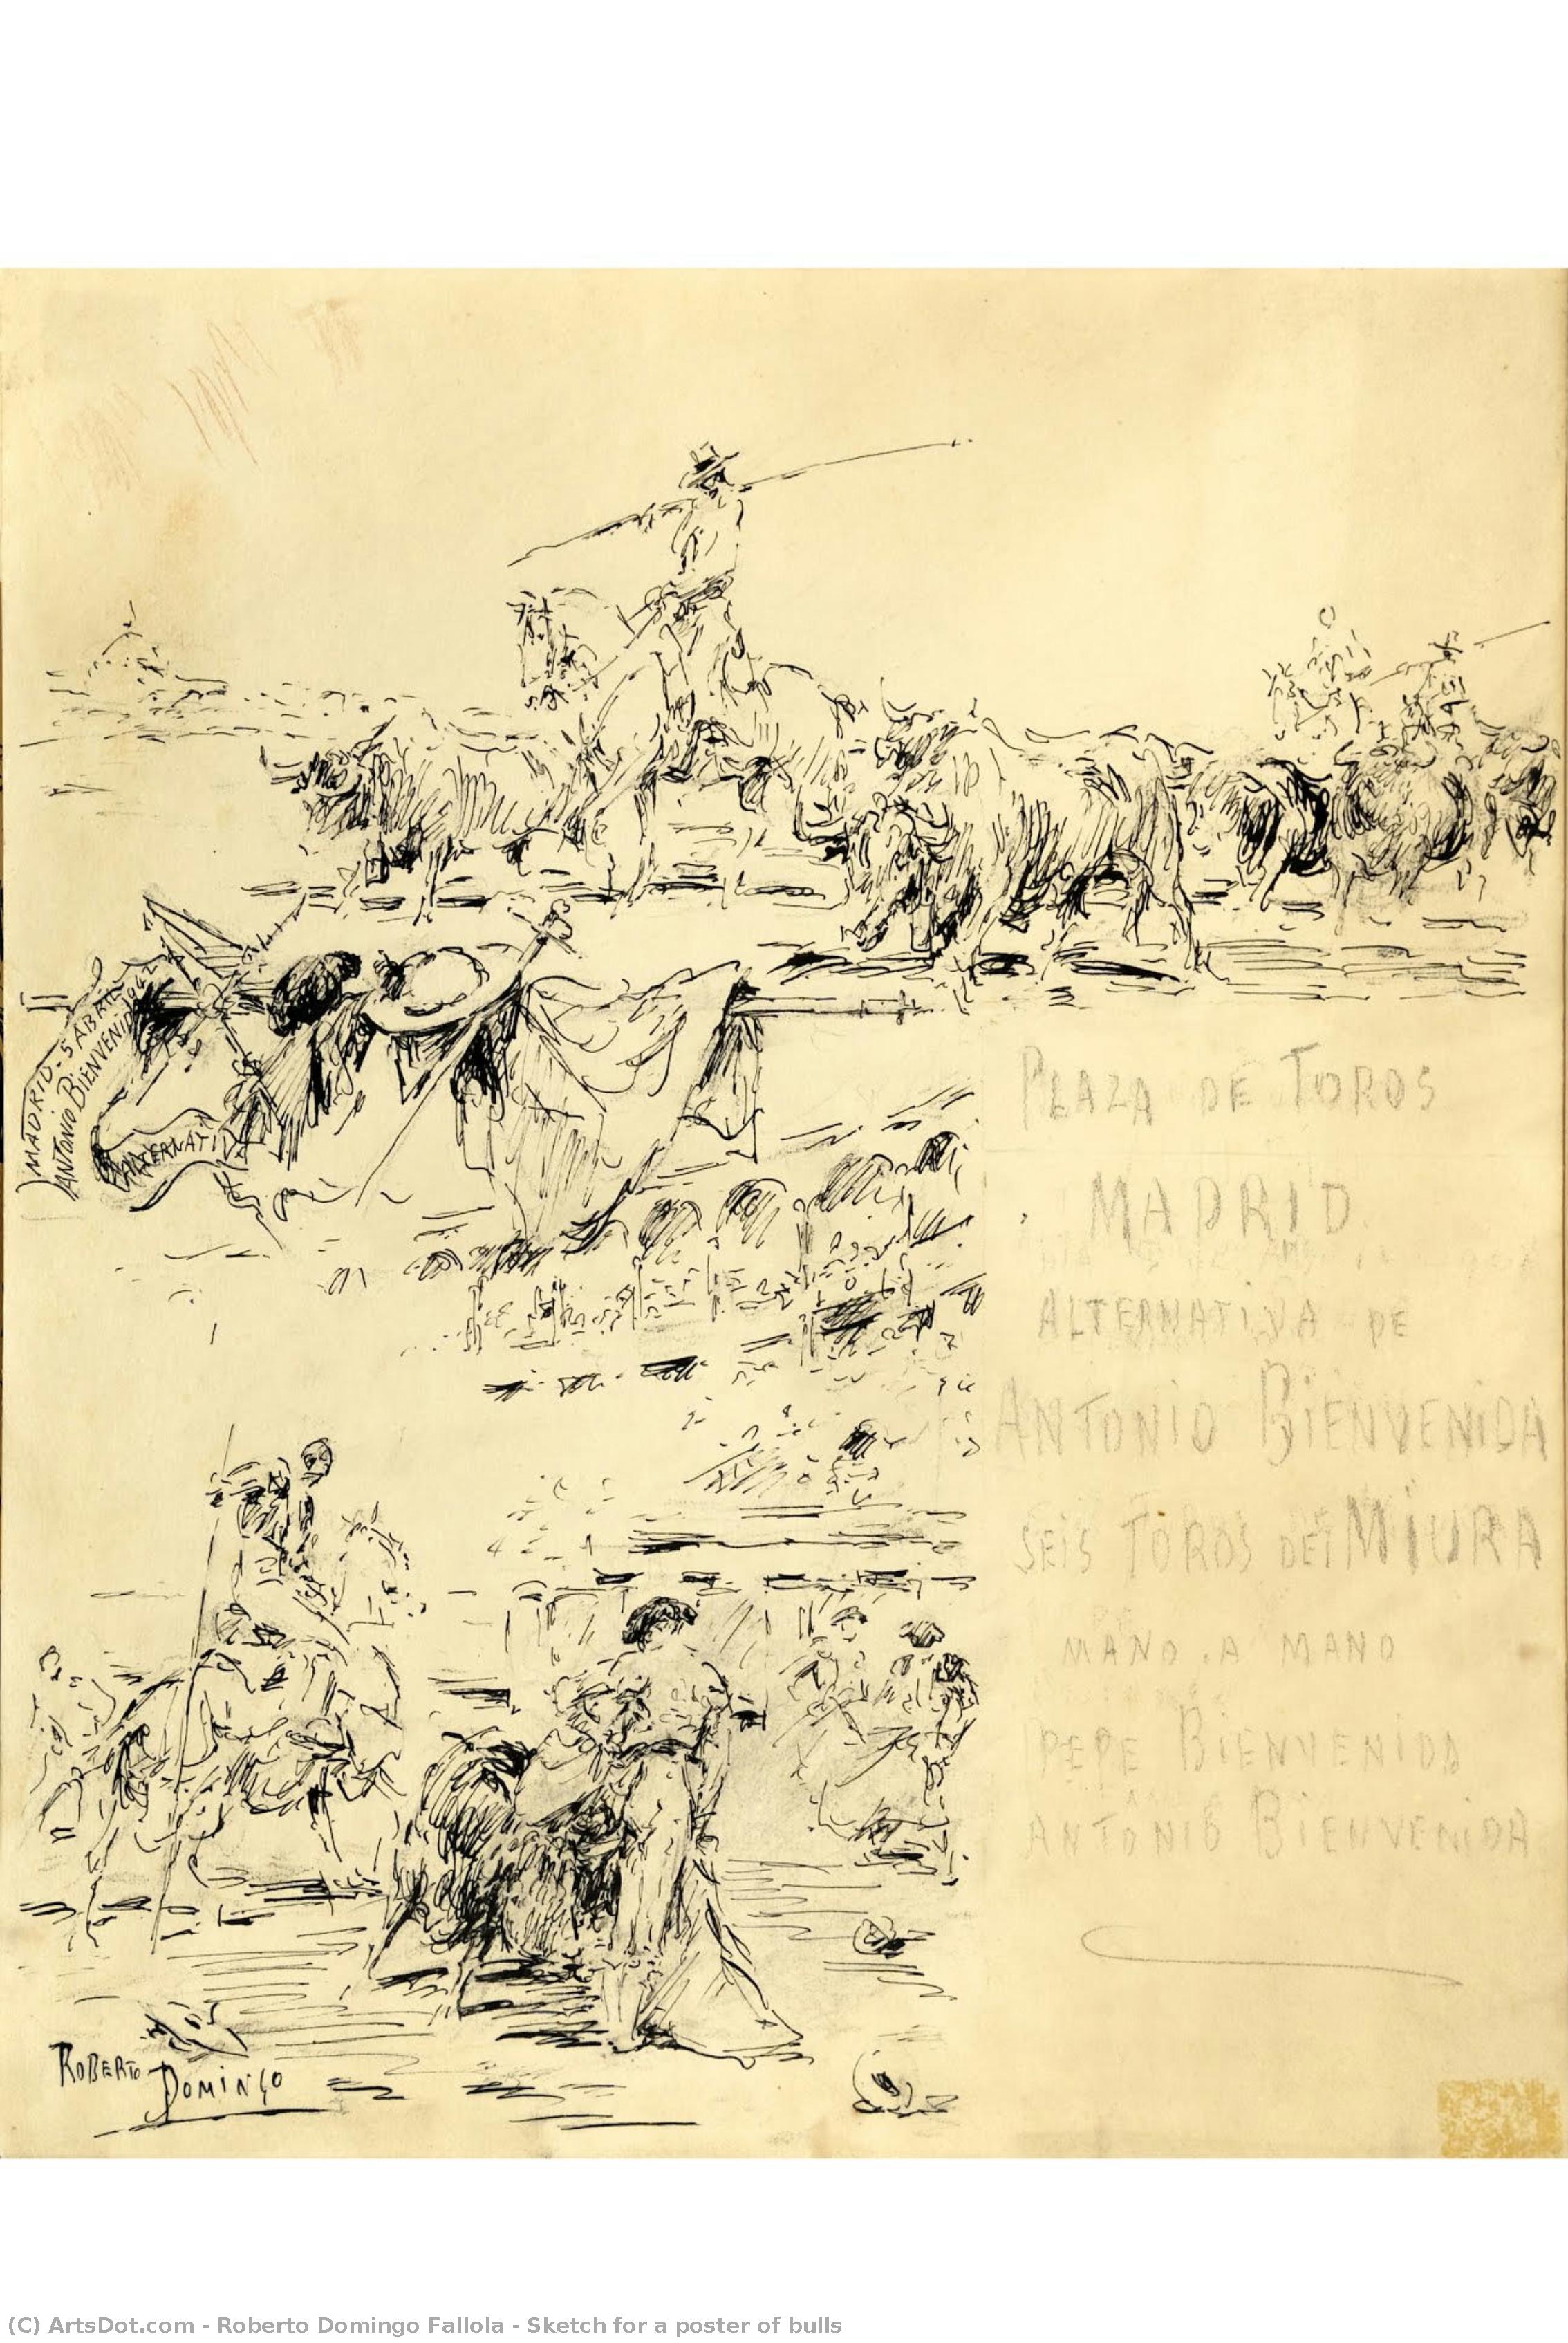 MADRID-5 ABRIL
ANTONIO BIENVENIDA 1942
PLAZA DE TOROS
MADRID
ALTERNATIVA DE
ANTONIO BIENVENIDA
SEIS TOROS DE MIURA
MANO A MANO
PEPE BIENVENIDA
ANTONIO BIENVENIDA
ROBERTO
DOMINGO
(C) ArtsDot.com - Roberto Domingo Fallola - Sketch for a poster of bulls